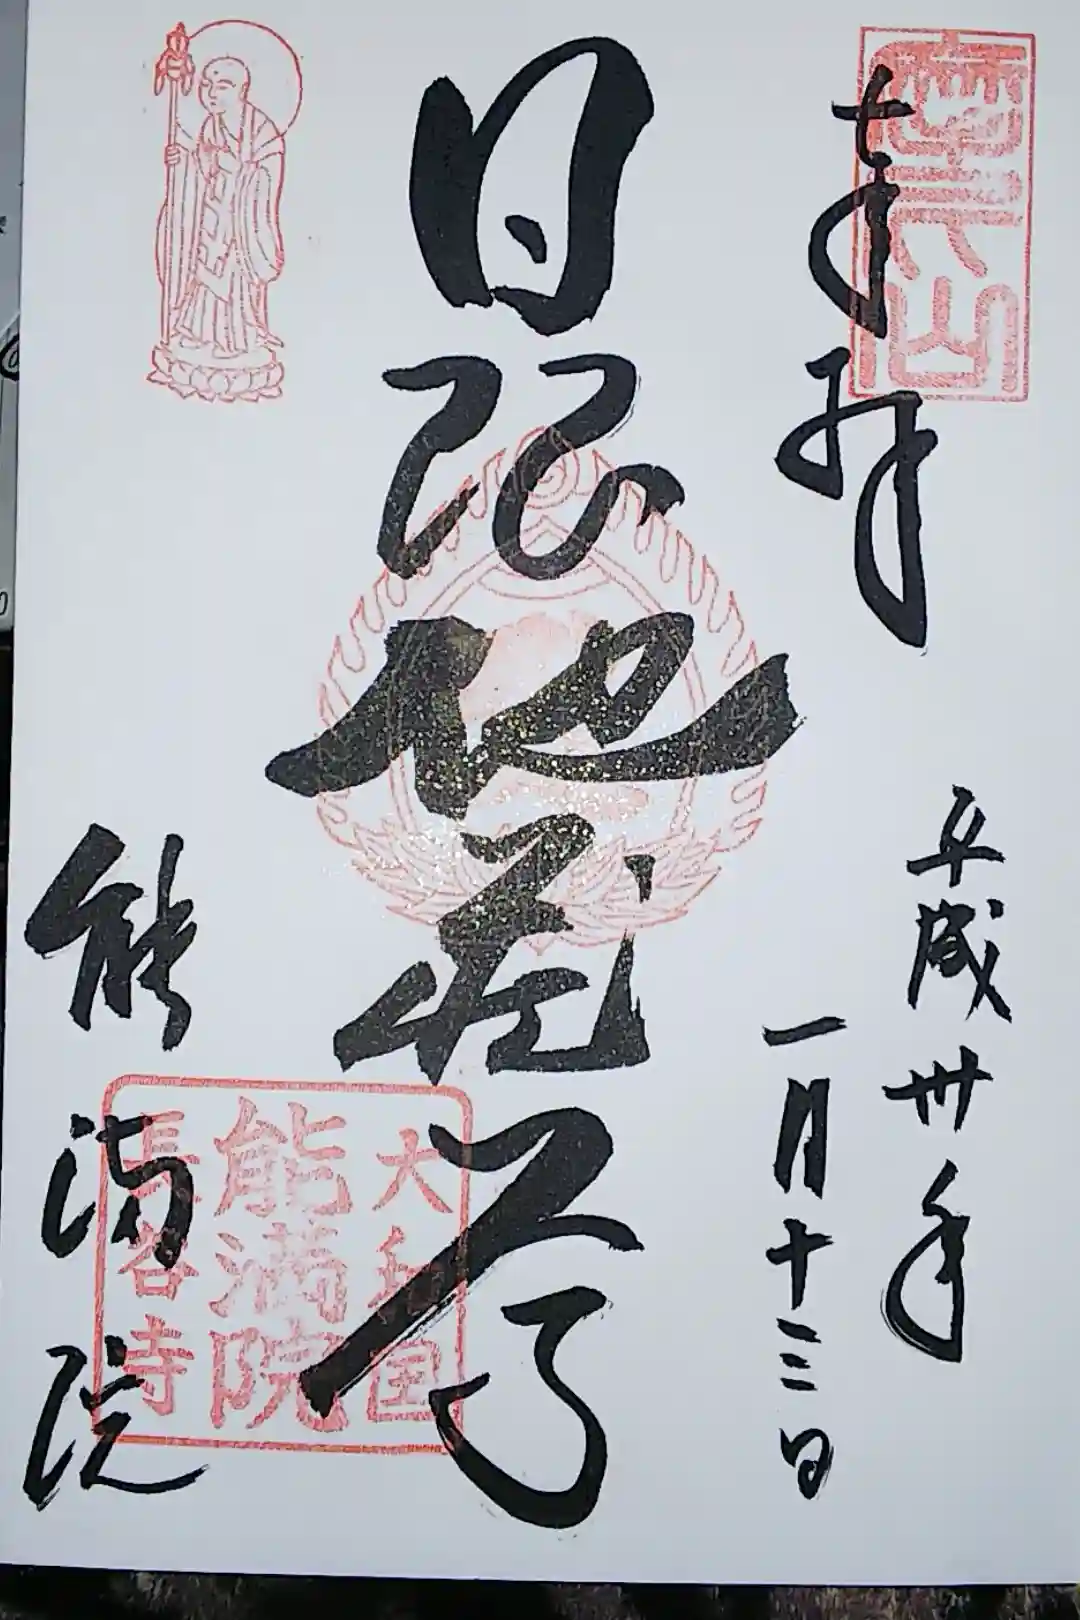 奉拝
平成卅年
一月十三日
日限地蔵尊
能満院
大和国
能満院
長谷寺